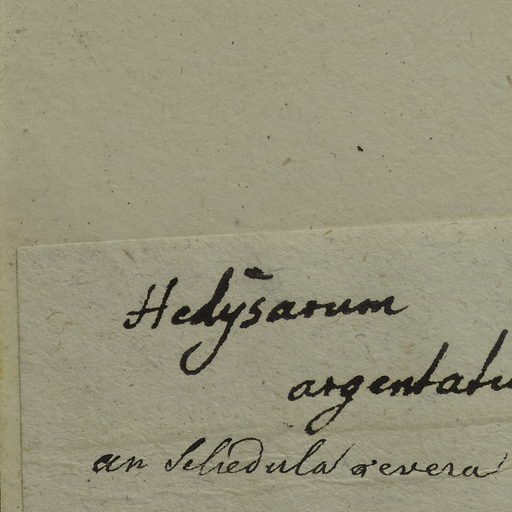 Hedÿsarum
argentatu
an Schedula revera